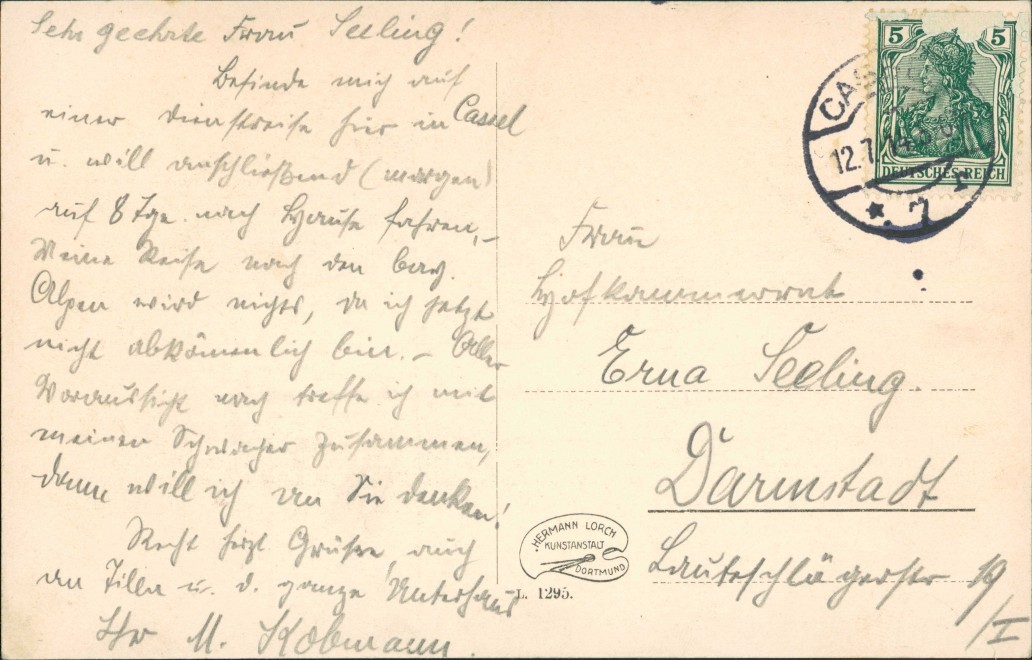 Sehr geehrte Frau Seeling!
Befinde mich auf
einer Dienstreise hier in Cassel
u. will anschließend (morgen)
auf 8 Tge. nach Hause fahren, –
Meine Reise nach den bay.
Alpen wird nichts, da ich jetzt
nicht abkömmlich bin. – Aller
Voraussicht nach treffe ich mit
meinem Schwager zusammen,
dann will ich an Sie denken!
Recht herzl Grüsse, auch
an Tilla u. d. ganze Unterhaus
Ihr M. Kobmann
5 5
DEUTSCHES REICH
CASSEL
12.7.
* 7 r
Frau
Hofkammerrat
Erna Seeling.
Darmstadt
Lauteschlägerstr 19/I
HERMANN LORCH
KUNSTANSTALT
DORTMUND
L. 1295.